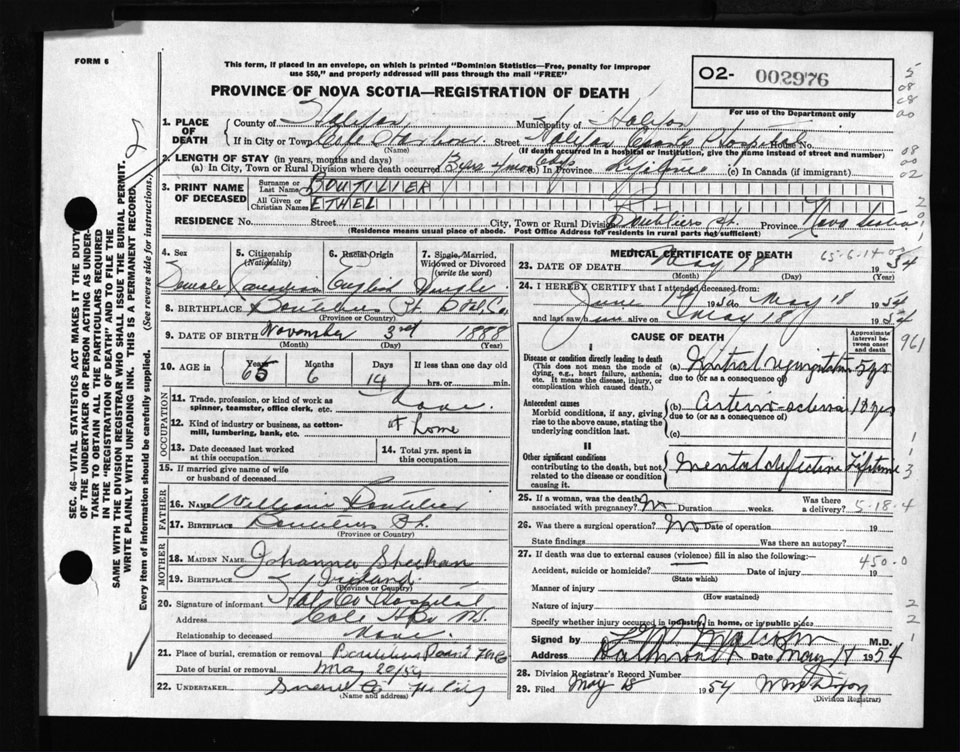 FORM 6
This form, if placed in an envelope, on which is printed "Dominion Statistics—Free, penalty for improper
use $50," and properly addressed will pass through the mail "FREE"
PROVINCE OF NOVA SCOTIA—REGISTRATION OF DEATH
02- 002976
For use of the Department only
1. PLACE OF DEATH
County of Halifax Municipality of Halifax
If in City or Town Cole Harbour Street Halifax County Hospital House No.
(Name) (If death occurred in a hospital or institution, give the name instead of street and number)
2. LENGTH OF STAY (in years, months and days)
(a) In City, Town or Rural Division where death occurred (b) In Province lifetime (c) In Canada (if immigrant)
3. PRINT NAME OF DECEASED
Surname or Last Name BOUTILIER
All Given or Christian Names ETHEL
RESIDENCE No. Street City, Town or Rural Division Boutiliers Pt. Province Nova Scotia
(Residence means usual place of abode. Post Office Address for residents in rural parts not sufficient)
4. Sex Female
5. Citizenship (Nationality) Canadian
6. Racial Origin English
7. Single, Married, Widowed or Divorced (write the word) Single
8. BIRTHPLACE Boutiliers Pt. Hfx. Co.
(Province or Country)
9. DATE OF BIRTH November 3rd 1888
(Month) (Day) (Year)
10. AGE in Years 65 Months 6 Days 14 If less than one day
hrs. or min.
OCCUPATION
11. Trade, profession, or kind of work as
spinner, teamster, office clerk, etc. None
12. Kind of industry or business, as cotton-
mill, lumbering, bank, etc. at home
13. Date deceased last worked
at this occupation
14. Total yrs. spent in
this occupation
15. If married give name of wife
or husband of deceased
FATHER
16. NAME William Boutilier
17. BIRTHPLACE Boutiliers Pt.
(Province or Country)
MOTHER
18. MAIDEN NAME Johanna Sheehan
19. BIRTHPLACE Ireland
(Province or Country)
20. Signature of informant Hfx Co Hospital
Address Cole Hbr N.S.
Relationship to deceased None.
21. Place of burial, cremation or removal Boutiliers Point
Date of burial or removal May 20/54
22. UNDERTAKER Snow Co. The City
(Name and address)
MEDICAL CERTIFICATE OF DEATH
23. DATE OF DEATH May 18 1954
(Month) (Day)
24. I HEREBY CERTIFY that I attended deceased from:
June May 18 1954
and last saw h alive on May 18 1954
CAUSE OF DEATH
Approximate interval between onset and death
I
Disease or condition directly leading to death
(This does not mean the mode of
dying, e.g., heart failure, asthenia,
etc. It means the disease, injury, or
complication which caused death.)
(a) Mitral regurgitation 5 yrs
due to (or as a consequence of)
Antecedent causes
Morbid conditions, if any, giving
rise to the above cause, stating the
underlying condition last.
(b) Arterio-sclerosis 10 yrs
due to (or as a consequence of)
(c)
II
Other significant conditions
contributing to the death, but not
related to the disease or condition
causing it.
Mental defective Lifetime
25. If a woman, was the death
associated with pregnancy? No Duration weeks. Was there
a delivery?
26. Was there a surgical operation? No Date of operation 19
State findings Was there an autopsy?
27. If death was due to external causes (violence) fill in also the following:
Accident, suicide or homicide? Date of injury 19
(State which)
Manner of injury
(How sustained)
Nature of injury
Specify whether injury occurred in industry, in home, or in public place
Signed by Malcolm M.D.
Address Dartmouth Date May 18 1954
28. Division Registrar's Record Number
29. Filed May 18 1954 Wm Dixon
(Division Registrar)
65-6-14
961
5-18-4
450.0
SEC. 46—VITAL STATISTICS ACT MAKES IT THE DUTY
OF THE UNDERTAKER OR PERSON ACTING AS UNDER-
TAKER TO OBTAIN ALL THE PARTICULARS REQUIRED
IN THE "REGISTRATION OF DEATH" AND TO FILE THE
SAME WITH THE DIVISION REGISTRAR WHO SHALL ISSUE THE BURIAL PERMIT.
WRITE PLAINLY WITH UNFADING INK. THIS IS A PERMANENT RECORD.
Every item of information should be carefully supplied. (See reverse side for instructions.)